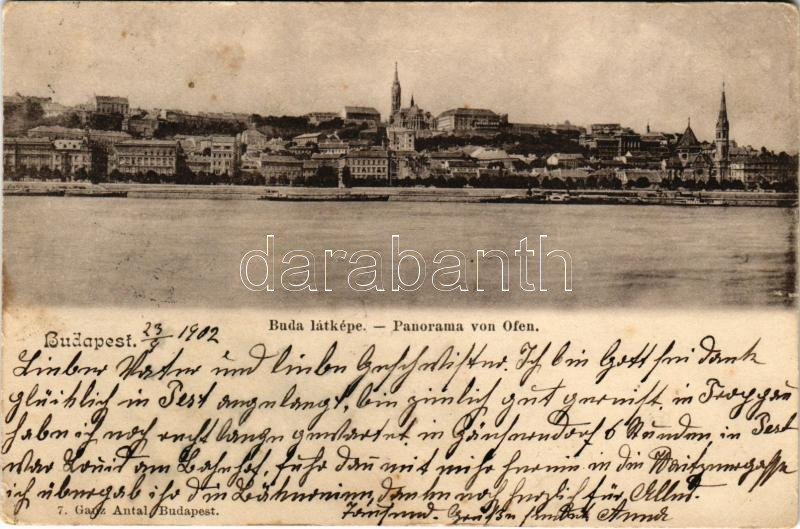 darabanth
Buda látképe. — Panorama von Ofen.
Budapest. 23/9 1902
Lieber Vater und liebe Geschwister. Ich bin Gott sei dank
glücklich in Pest angelangt, bin zimlich gut gereist, in
habe ich noch recht lange gewartet in Gänserndorf 6 Stunden, in Pest
war Louis am Bahnhof, fuhr dan mit mihr herein in die Waitznergasse
ich übergab iho die danke noch herzlich für Alles.
Tausend Grüße sendet Anna
7. Ganz Antal, Budapest.